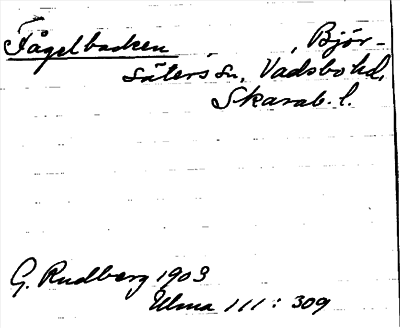 Fågelbacken , Björ-
säters sn, Vadsbo hd,
Skarab. l.
G. Rudberg 1903
Ulma 111 : 309